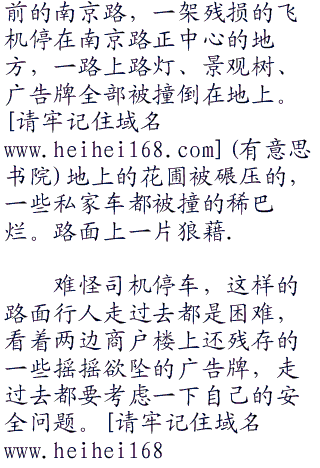 前的南京路，一架残损的飞
机停在南京路正中心的地
方，一路上路灯、景观树、
广告牌全部被撞倒在地上。
[请牢记住域名
www.heihei168.com](有意思
书院)地上的花圃被碾压的，
一些私家车都被撞的稀巴
烂。路面上一片狼藉.
难怪司机停车，这样的
路面行人走过去都是困难，
看着两边商户楼上还残存的
一些摇摇欲坠的广告牌，走
过去都要考虑一下自己的安
全问题。[请牢记住域名
www.heihei168